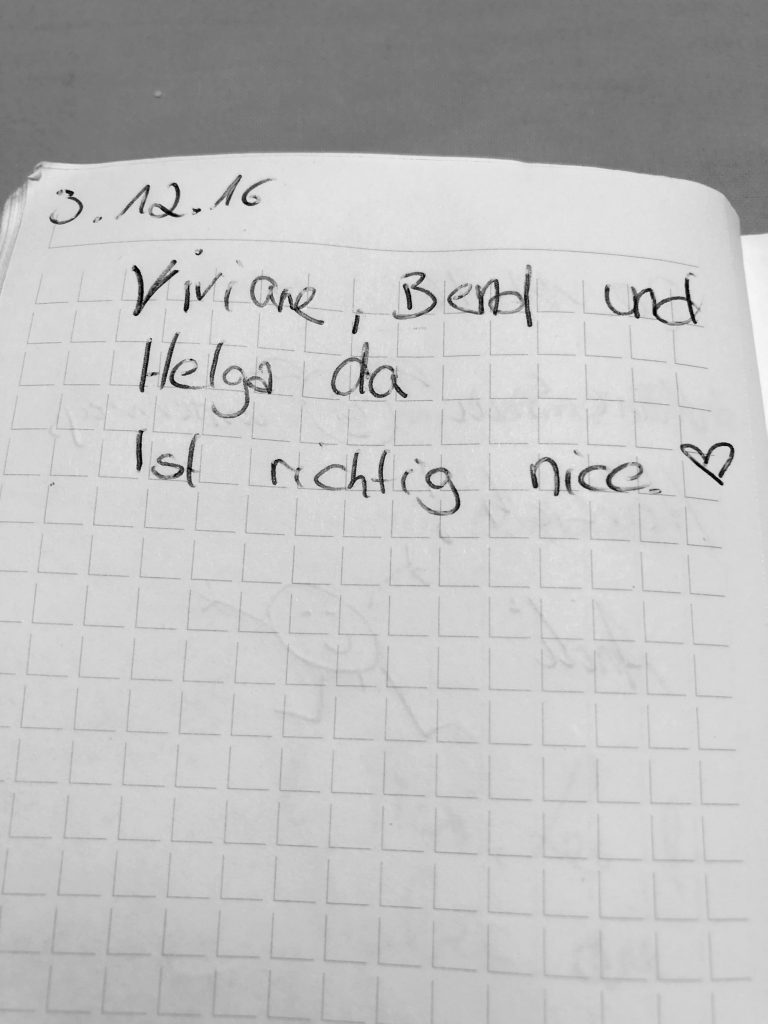 3.12.16
Viviane, Bernd und
Helga da
Ist richtig nice. ♡